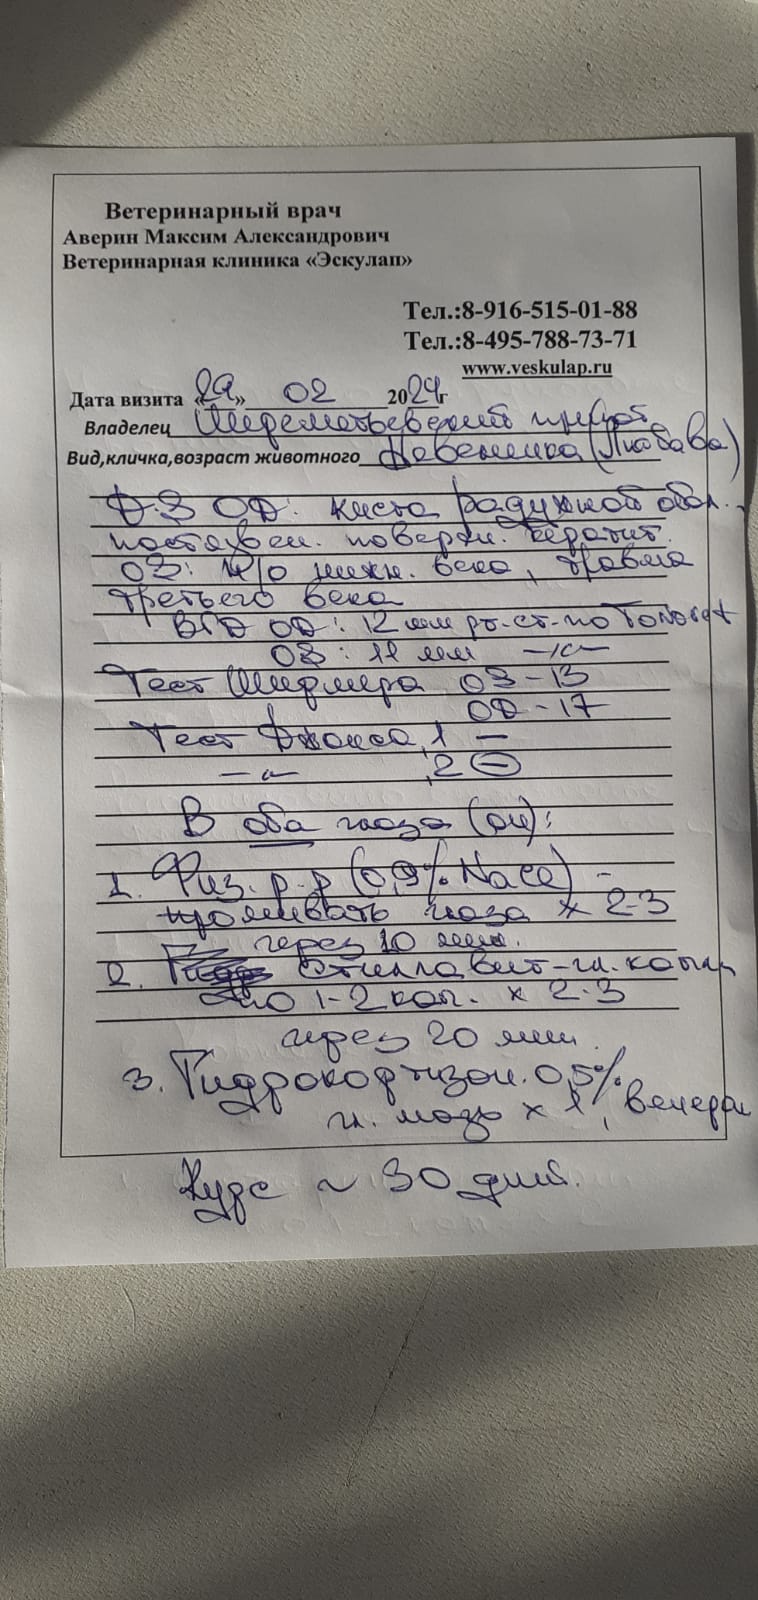 Ветеринарный врач
Аверин Максим Александрович
Ветеринарная клиника «Эскулап»
Тел.:8-916-515-01-88
Тел.:8-495-788-73-71
www.veskulap.ru
Дата визита «29» 02 2024г
Владелец Шереметьевский приют
Вид,кличка,возраст животного (Любава)
Д-З OD: киста радужной обол.
поверхн. кератит.
OS: н/о нижн. века, травма
третьего века
ВГД OD: 12 мм рт.ст. по Tonovet
OS: 11 мм —〃—
Тест Ширмера OS-13
OD-17
Тест Джонса, 1 —
—〃— , 2 ⊖
В оба глаза (ou):
1. Физ. р-р (0,9% NaCl) -
промывать глаза × 2-3
через 10 мин.
2. Стиллавит-гл. капли
по 1-2 кап. × 2-3
через 20 мин.
3. Гидрокортизон. 0,5%
гл. мазь × 1, вечером
Курс ~ 30 дней.